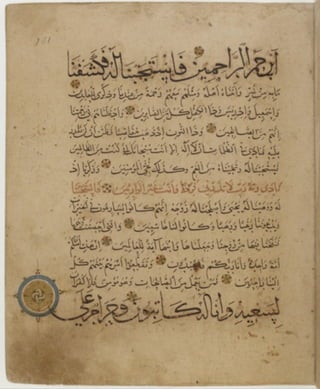 أرحم الراحمين فاستجبنا له فكشفنا
ما به من ضر وآتيناه أهله ومثلهم معهم رحمة من عندنا وذكرى للعابدين
وإسمعيل وإدريس وذا الكفل كل من الصابرين وأدخلناهم في رحمتنا
إنهم من الصالحين وذا النون إذ ذهب مغاضبا فظن أن لن نقدر
عليه فنادى في الظلمات أن لا إله إلا أنت سبحانك إني كنت من الظالمين
فاستجبنا له ونجيناه من الغم وكذلك ننجي المؤمنين وزكريا إذ
نادى ربه رب لا تذرني فردا وأنت خير الوارثين فاستجبنا
له ووهبنا له يحيى وأصلحنا له زوجه إنهم كانوا يسارعون في الخيرات
ويدعوننا رغبا ورهبا وكانوا لنا خاشعين والتي أحصنت فرجها
فنفخنا فيها من روحنا وجعلناها وابنها آية للعالمين إن هذه أمتكم
أمة واحدة وأنا ربكم فاعبدون وتقطعوا أمرهم بينهم كل
إلينا راجعون فمن يعمل من الصالحات وهو مؤمن فلا كفران
لسعيه وإنا له كاتبون وحرام على